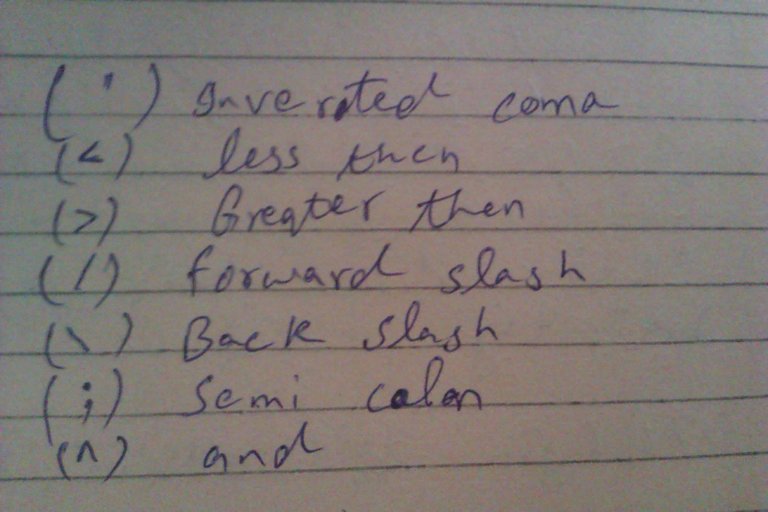 (') Inverted coma
(<) less then
(>) Greater then
(/) forward slash
(\) Back slash
(;) Semi colon
(^) and